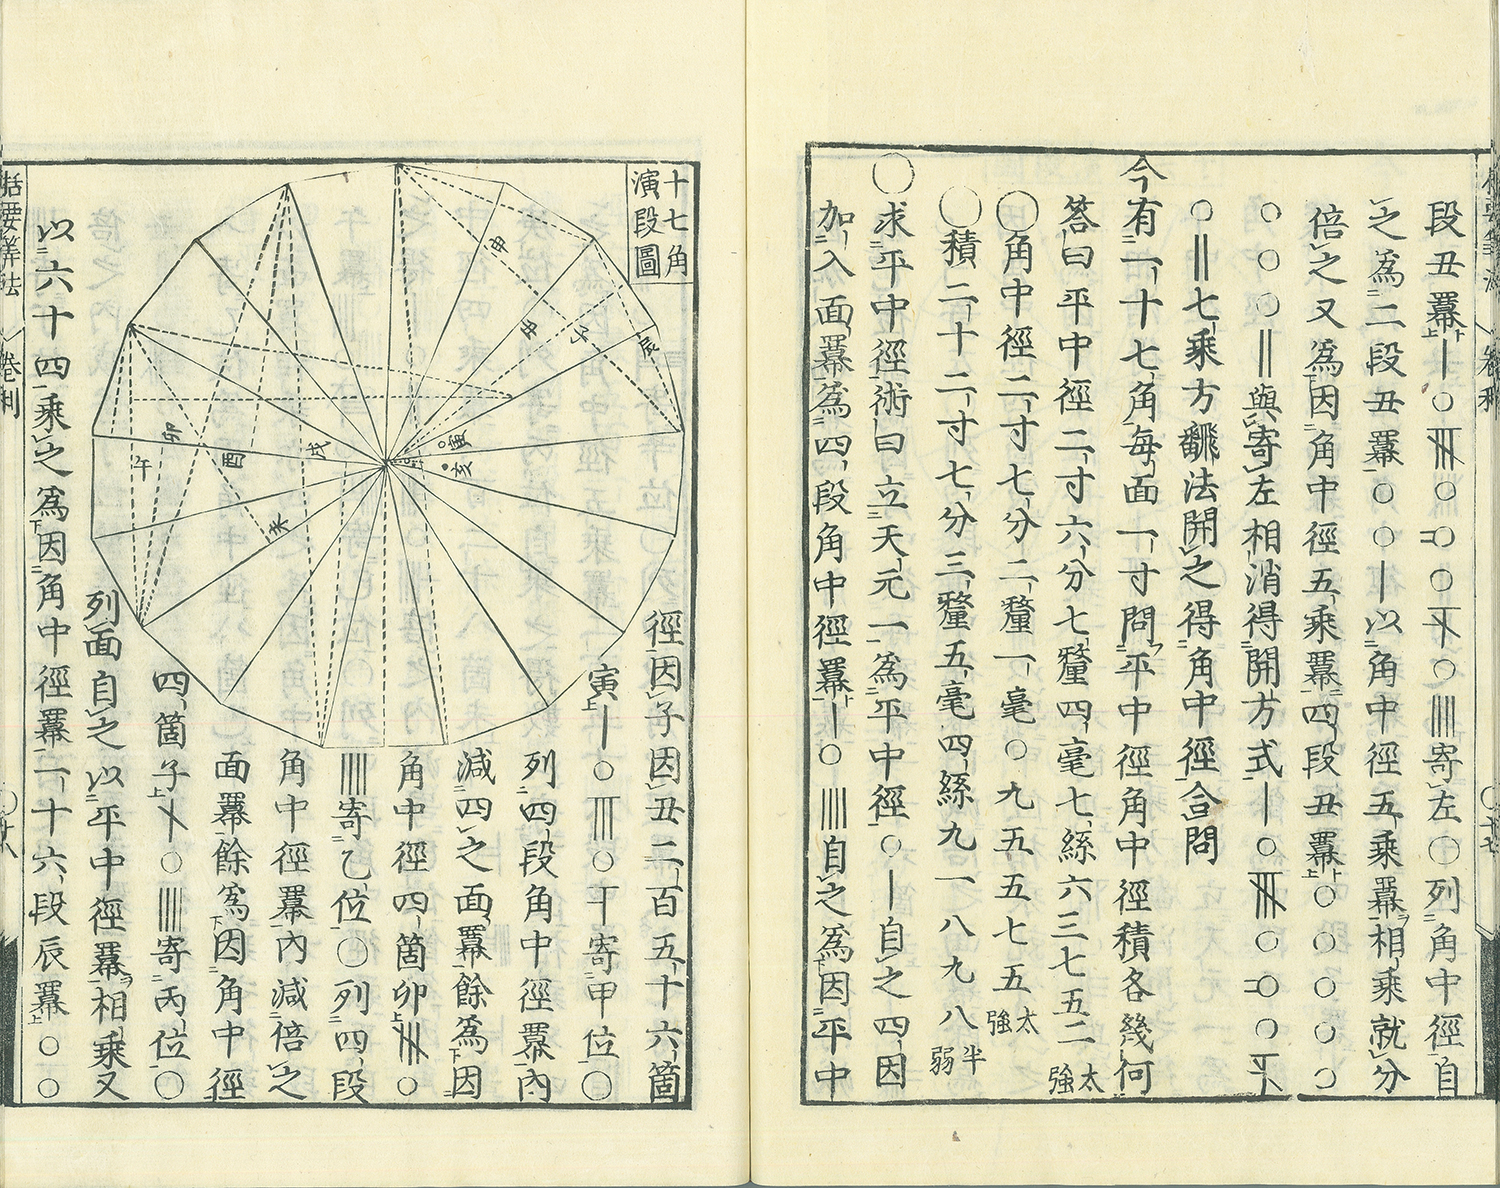 段丑冪
寄左〇列角中徑自
之爲二段丑冪
以角中徑五乘冪相乘就分
倍之又爲因角中徑五乘冪四段丑冪
與寄左相消得開方式
七乘方飜法開之得角中徑合問
今有一十七角每面一寸問平中徑角中徑積各幾何
答曰平中徑二寸六分七釐四毫七絲六三七五二太強
〇角中徑二寸七分二釐一毫〇九五五七五太強
〇積二十二寸七分三釐五毫四絲九一八九八半弱
〇求平中徑術曰立天元一爲平中徑〇|自之四因
加入面冪爲四段角中徑冪|〇||||自之爲因平中
十七角
演段圖
徑因子因丑二百五十六箇
寅
寄甲位〇
列四段角中徑冪內
減四之面冪餘爲因
角中徑四箇卯
寄乙位〇列四段
角中徑冪內減倍之
面冪餘爲因角中徑
四箇子
寄丙位〇
列面自之以平中徑冪相乘又
以六十四乘之爲因角中徑冪一十六段辰冪〇〇
申
子
辰
寅
亥
戌
酉
卯
午
未
括要算法
卷利